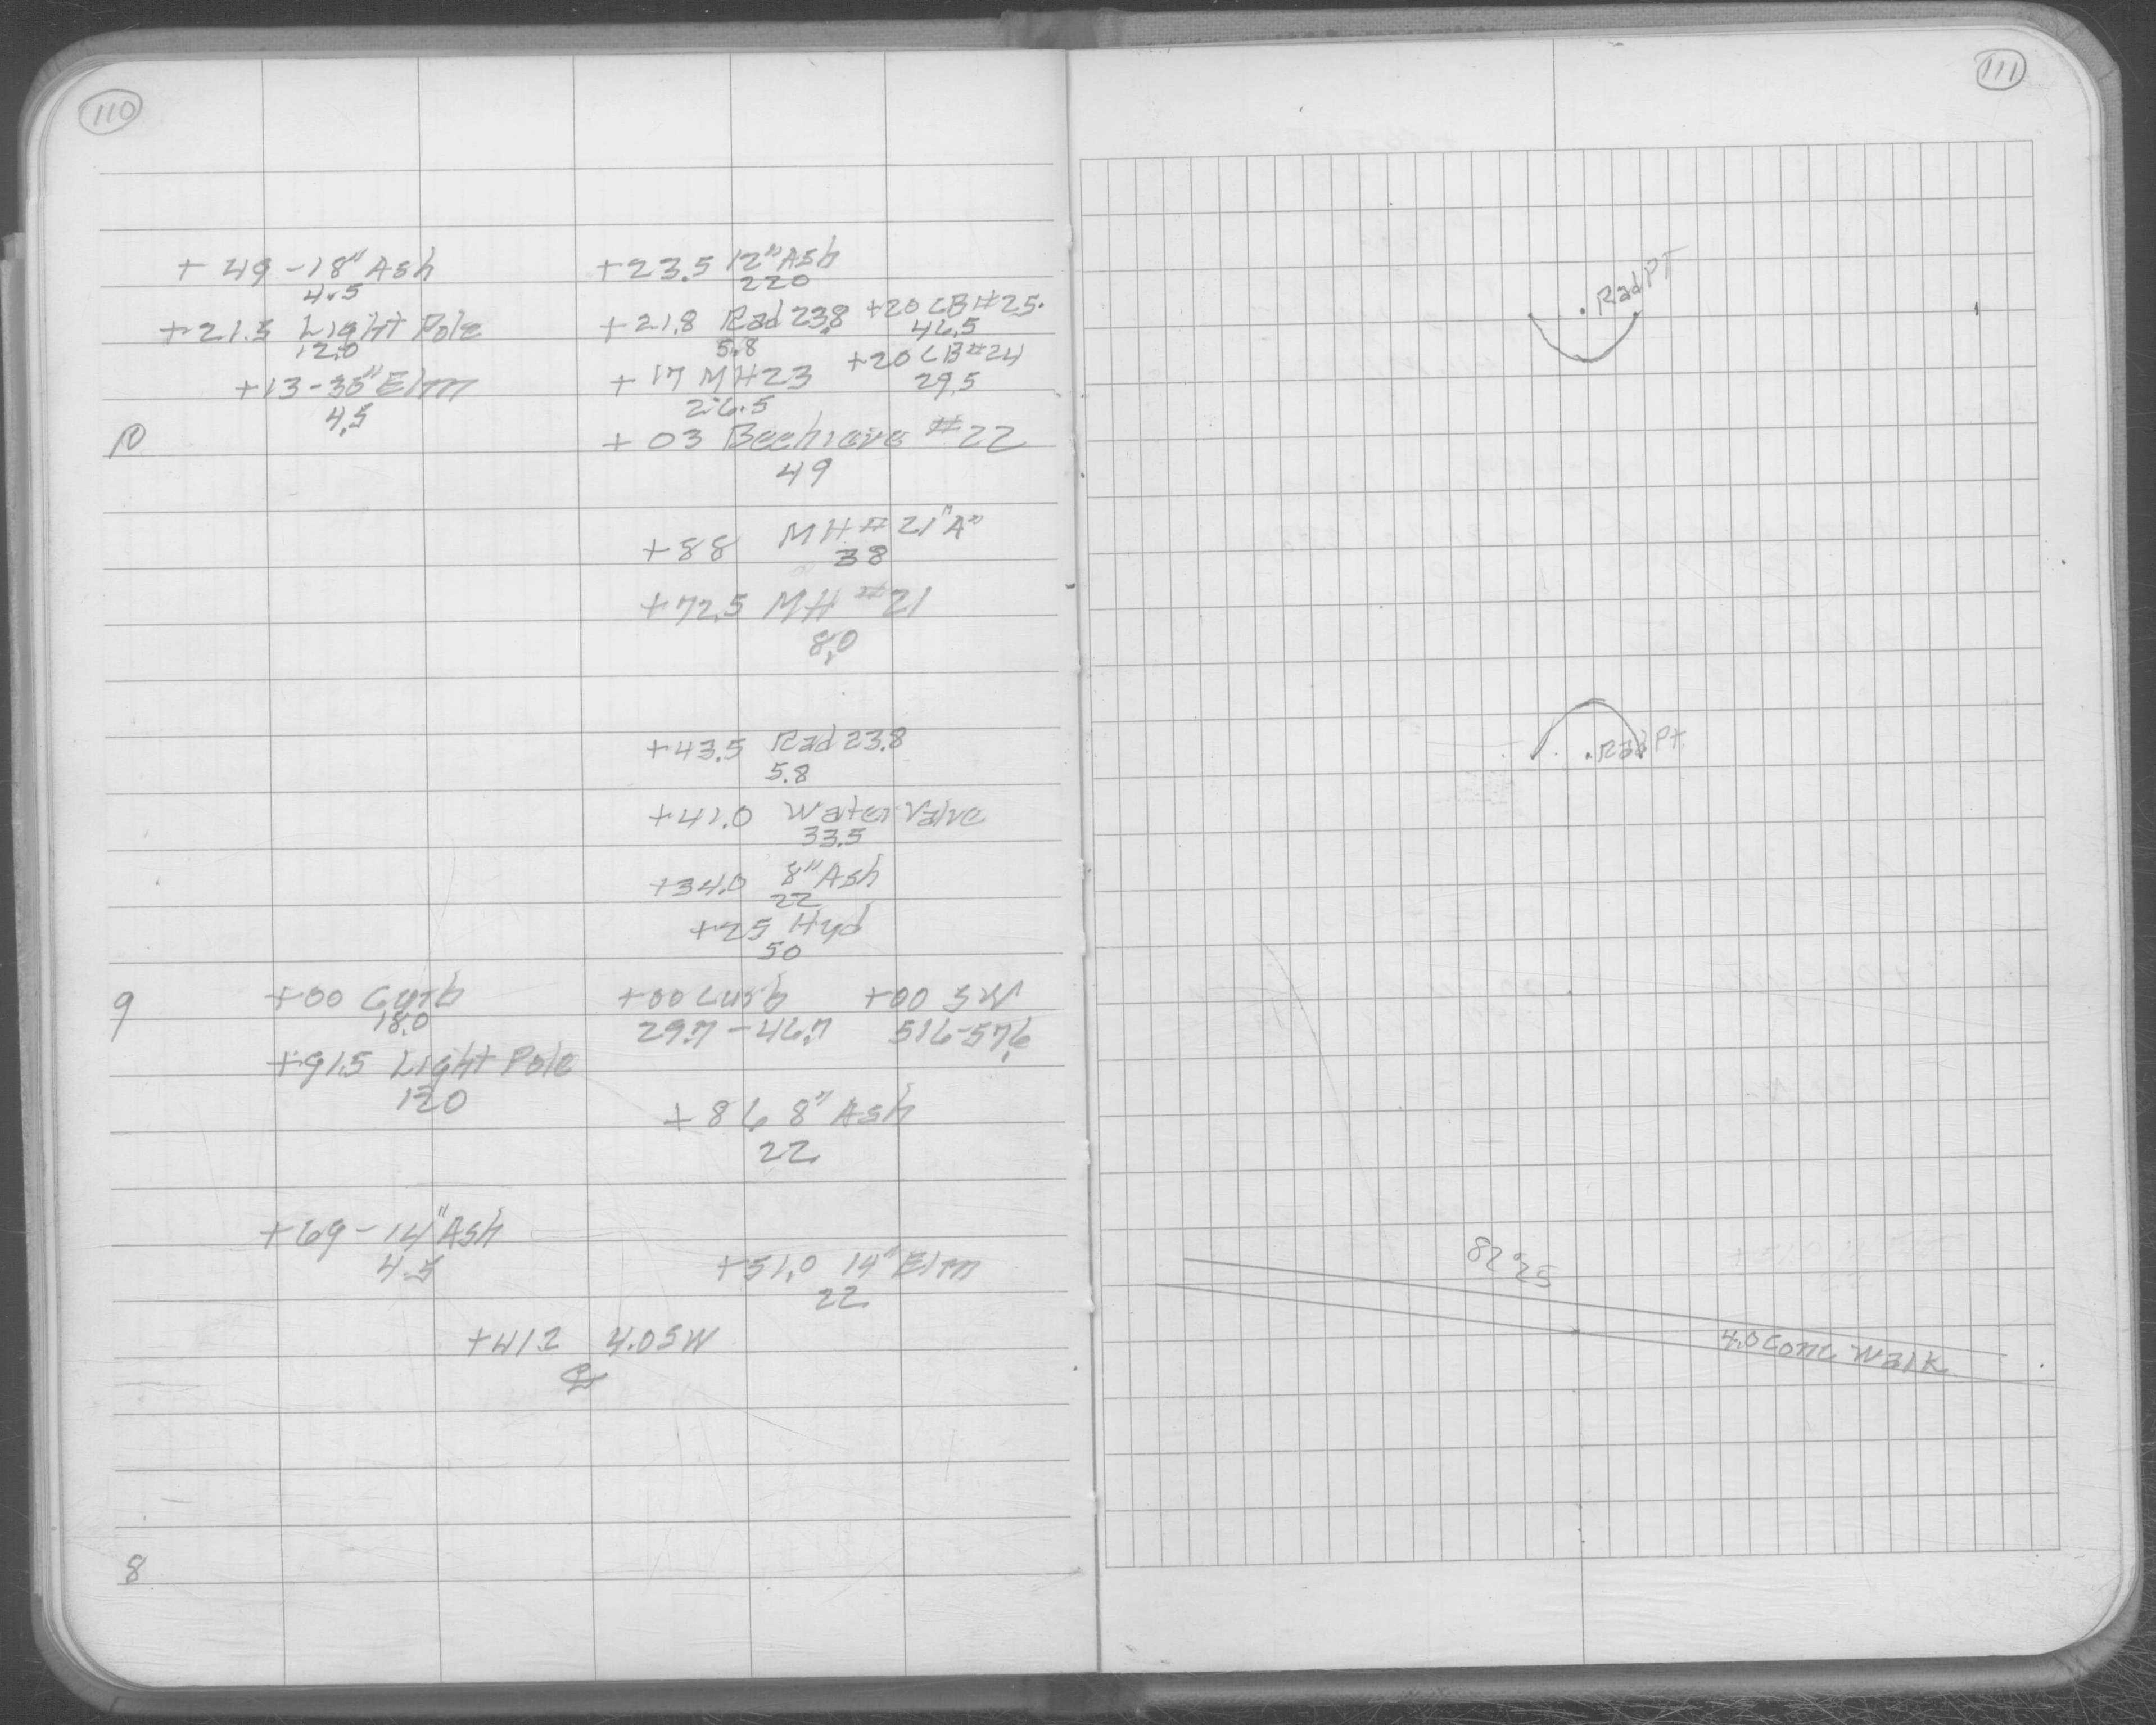 110
+49 -18" Ash +23.5 12" Ash
4.5 220
+21.5 Light Pole +21.8 Rad 23.8 +20 CB #25
12.0 5.8 46.5
+13 -36" Elm +17 MH 23 +20 CB #24
4.5 26.5 29.5
10 +03 Beehieve #22
49
+88 MH #21 "A"
38
+72.5 MH #21
8.0
+43.5 Rad 23.8
5.8
+41.0 Water Valve
33.5
+34.0 8" Ash
22
+25 Hyd
50
9 +00 Curb +00 Curb +00 SW
18.0 29.7-46.7 51.6-57.6
+91.5 Light Pole
12.0
+86 8" Ash
22
+69 -14" Ash
4.5
+51.0 14" Elm
22
+41.2 4.0 SW
℄
8
111
Rad PT
Rad Pt.
82°25
4.0 Conc Walk